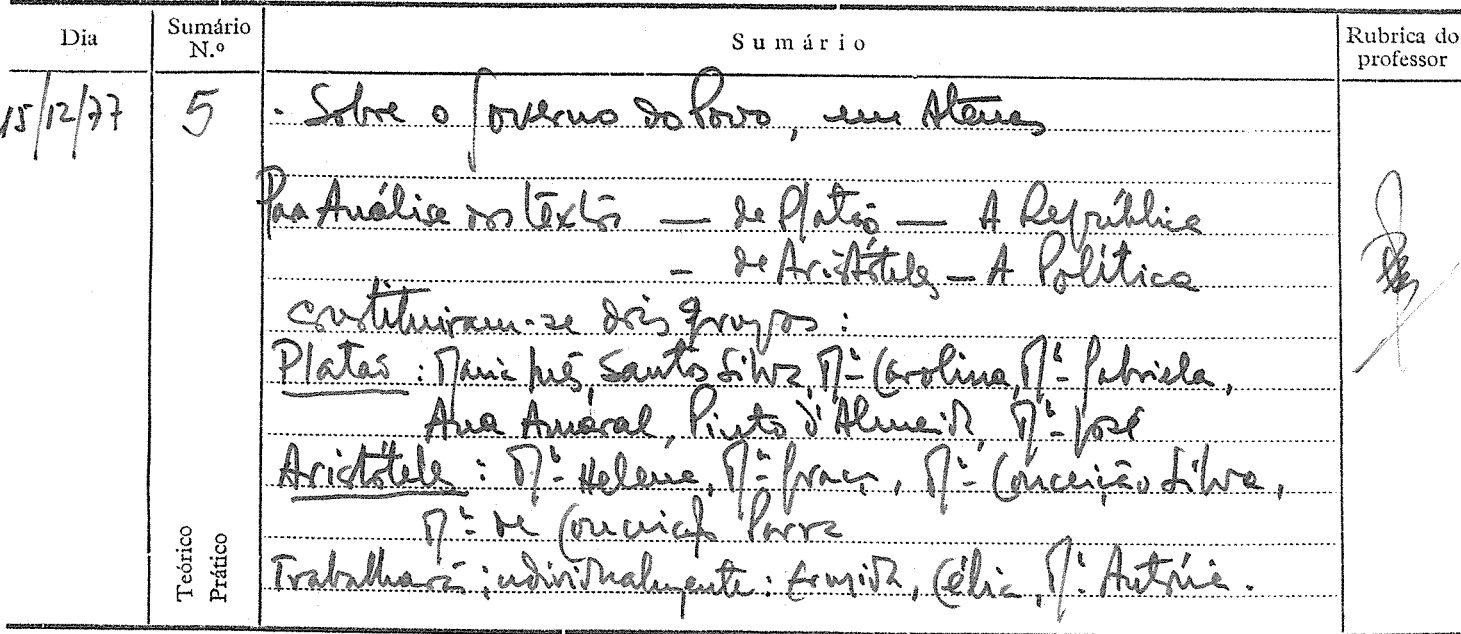 Dia
Sumário N.º
Sumário
Rubrica do professor
15/12/77
5
- Sobre o Governo do Povo, em Atenas
Para Análise dos textos — de Platão — A República
- de Aristóteles — A Política
constituiram-se dois grupos:
Platão: Maria Inês, Santos Silva, Mª Carolina, Mª Gabriela,
Ana Amaral, Pinto d'Almeida, Mª José
Aristóteles: Mª Helena, Mª Graça, Mª Conceição Silva,
Mª de Conceição Parra
Trabalhará individualmente: Ermida, Célia, Mª Antónia.
Teórico
Prático